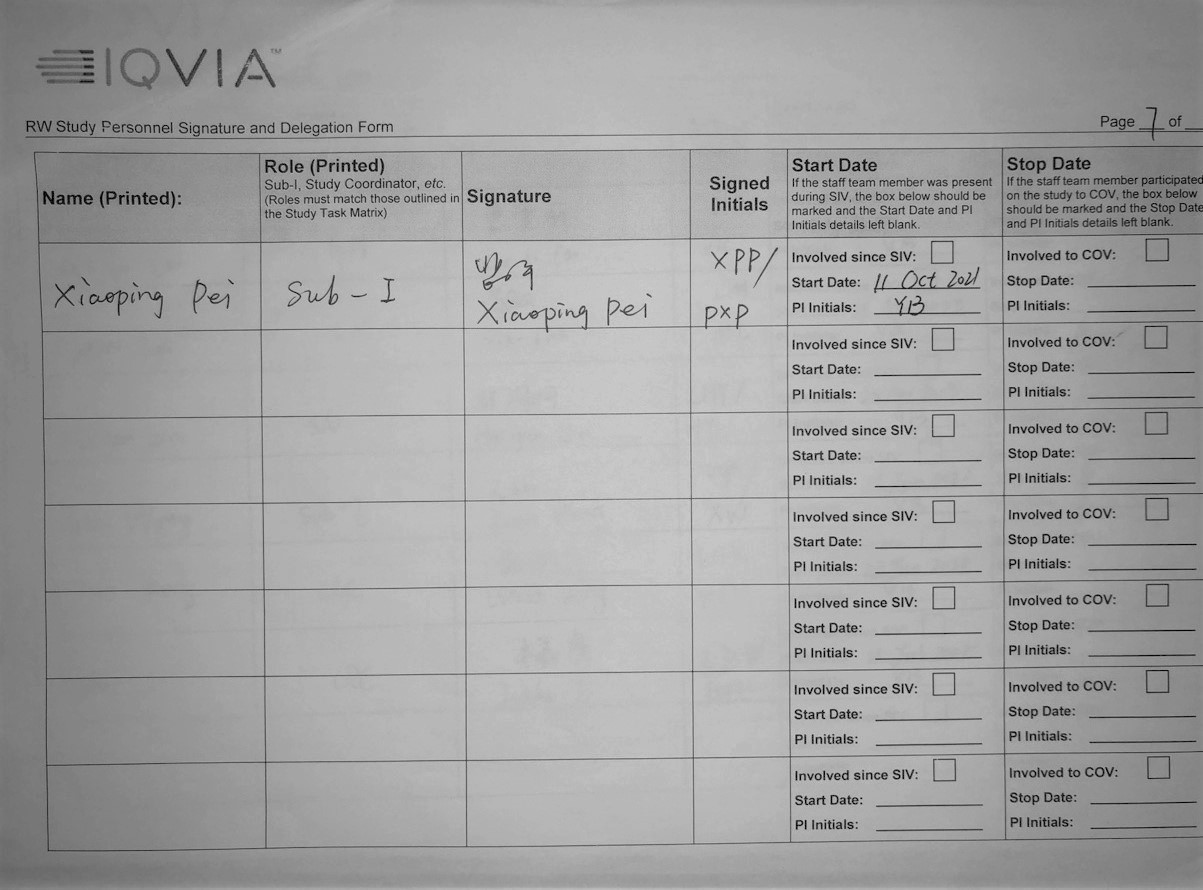 IQVIA™
RW Study Personnel Signature and Delegation Form
Page 7 of
Name (Printed):
Role (Printed)
Sub-I, Study Coordinator, etc.
(Roles must match those outlined in
the Study Task Matrix)
Signature
Signed
Initials
Start Date
If the staff team member was present
during SIV, the box below should be
marked and the Start Date and PI
Initials details left blank.
Stop Date
If the staff team member participated
on the study to COV, the box below
should be marked and the Stop Date
and PI Initials details left blank.
Xiaoping Pei
Sub-I
Xiaoping Pei
XPP/
PXP
Involved since SIV:
Start Date: 11 Oct 2021
PI Initials: YB
Involved to COV:
Stop Date:
PI Initials:
Involved since SIV:
Start Date:
PI Initials:
Involved to COV:
Stop Date:
PI Initials:
Involved since SIV:
Start Date:
PI Initials:
Involved to COV:
Stop Date:
PI Initials:
Involved since SIV:
Start Date:
PI Initials:
Involved to COV:
Stop Date:
PI Initials:
Involved since SIV:
Start Date:
PI Initials:
Involved to COV:
Stop Date:
PI Initials:
Involved since SIV:
Start Date:
PI Initials:
Involved to COV:
Stop Date:
PI Initials:
Involved since SIV:
Start Date:
PI Initials:
Involved to COV:
Stop Date:
PI Initials: